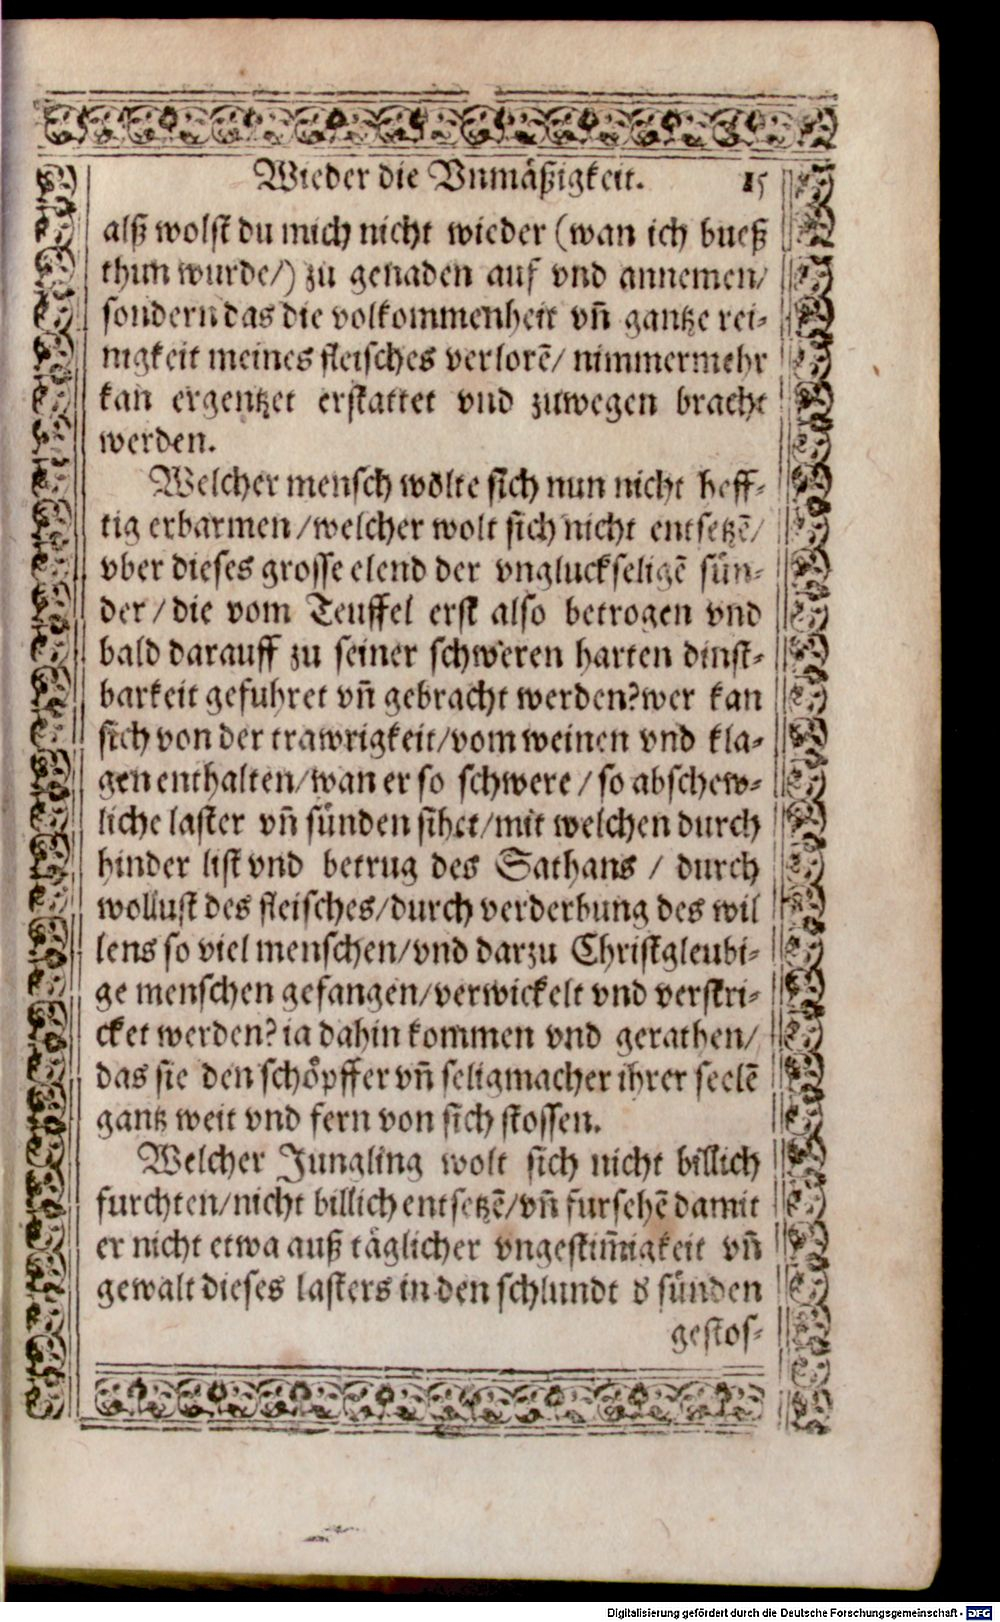 Wieder die Vnmäßigkeit. 15
alß wolst du mich nicht wieder (wan ich bueß
thun wurde/) zu genaden auf vnd annemen/
sondern das die volkommenheit vn̄ gantze rei-
nigkeit meines fleisches verlorē/ nimmermehr
kan ergentzet erstattet vnd zuwegen bracht
werden.
Welcher mensch wolte sich nun nicht heff-
tig erbarmen/welcher wolt sich nicht entsetzē/
vber dieses grosse elend der vngluckseligē sün-
der/die vom Teuffel erst also betrogen vnd
bald darauff zu seiner schweren harten dinst-
barkeit gefuhret vn̄ gebracht werden?wer kan
sich von der trawrigkeit/vom weinen vnd kla-
gen enthalten/wan er so schwere/so abschew-
liche laster vn̄ sünden sihet/mit welchen durch
hinder list vnd betrug des Sathans / durch
wollust des fleisches/durch verderbung des wil
lens so viel menschen/vnd darzu Christgleubi-
ge menschen gefangen/verwickelt vnd verstri-
cket werden? ia dahin kommen vnd gerathen/
das sie den schöpffer vn̄ seligmacher ihrer seelē
gantz weit vnd fern von sich stossen.
Welcher Jungling wolt sich nicht billich
furchten/nicht billich entsetzē/vn̄ fursehē damit
er nicht etwa auß täglicher vngestim̄igkeit vn̄
gewalt dieses lasters in den schlundt d sünden
gestos-
Digitalisierung gefördert durch die Deutsche Forschungsgemeinschaft - DFG